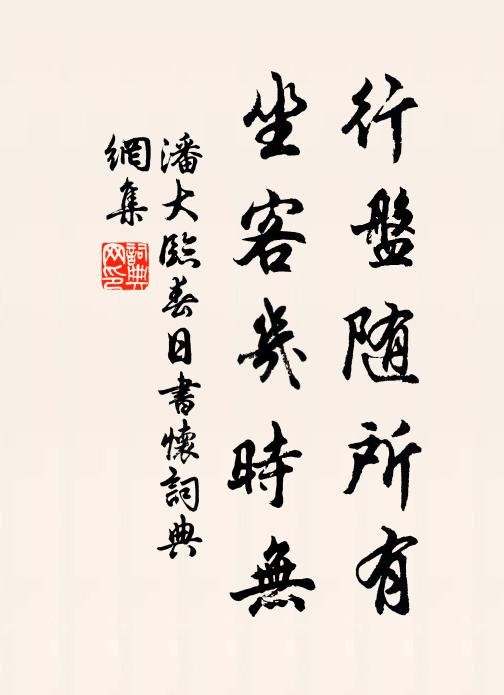 行盤随所有
坐客幾時無
潘大臨春日書懷詞典
網集
詞典
网印